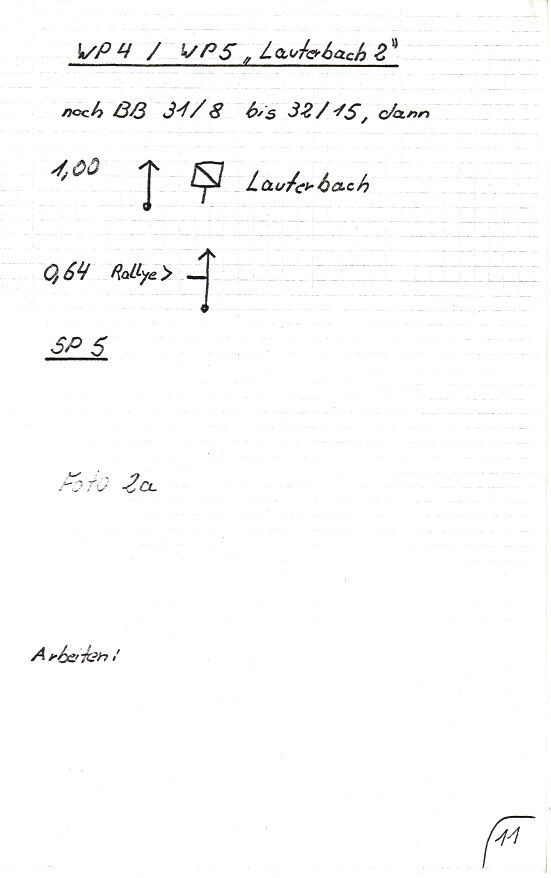 WP4 / WP5 „Lauterbach 2"
noch BB 31/8 bis 32/15, dann
1,00 Lauterbach
0,64 Rallye>
SP 5
Foto 2a
Arbeiten:
11